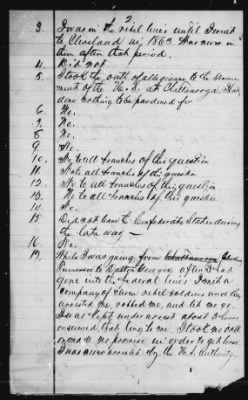 2.
3. I was in the rebel lines until I went
to Cleveland in 1863. Was never in
them after that period.
4. Did not.
5. I took the oath of allegiance to the Govern-
ment of the U.S. at Chattanooga. I had
done nothing to be pardoned for
6. No.
7. No.
8. No
9. No.
10. No to all branches of this question
11. No to all branches of this question
12. No to all branches of this question
13. No to all branches of this question
14. No.
15 Did not leave the Confederate States during
the late war —
16 No.
17. While I was going from Cleveland
Tennessee to Dalton Georgia after I had
gone into the federal lines I met a
company of rebel soldiers and they
arrested me, robbed me, and let me go.
I was kept under arrest about
It took no oath
made no promise in order to get
I was never arrested by the U.S. authority